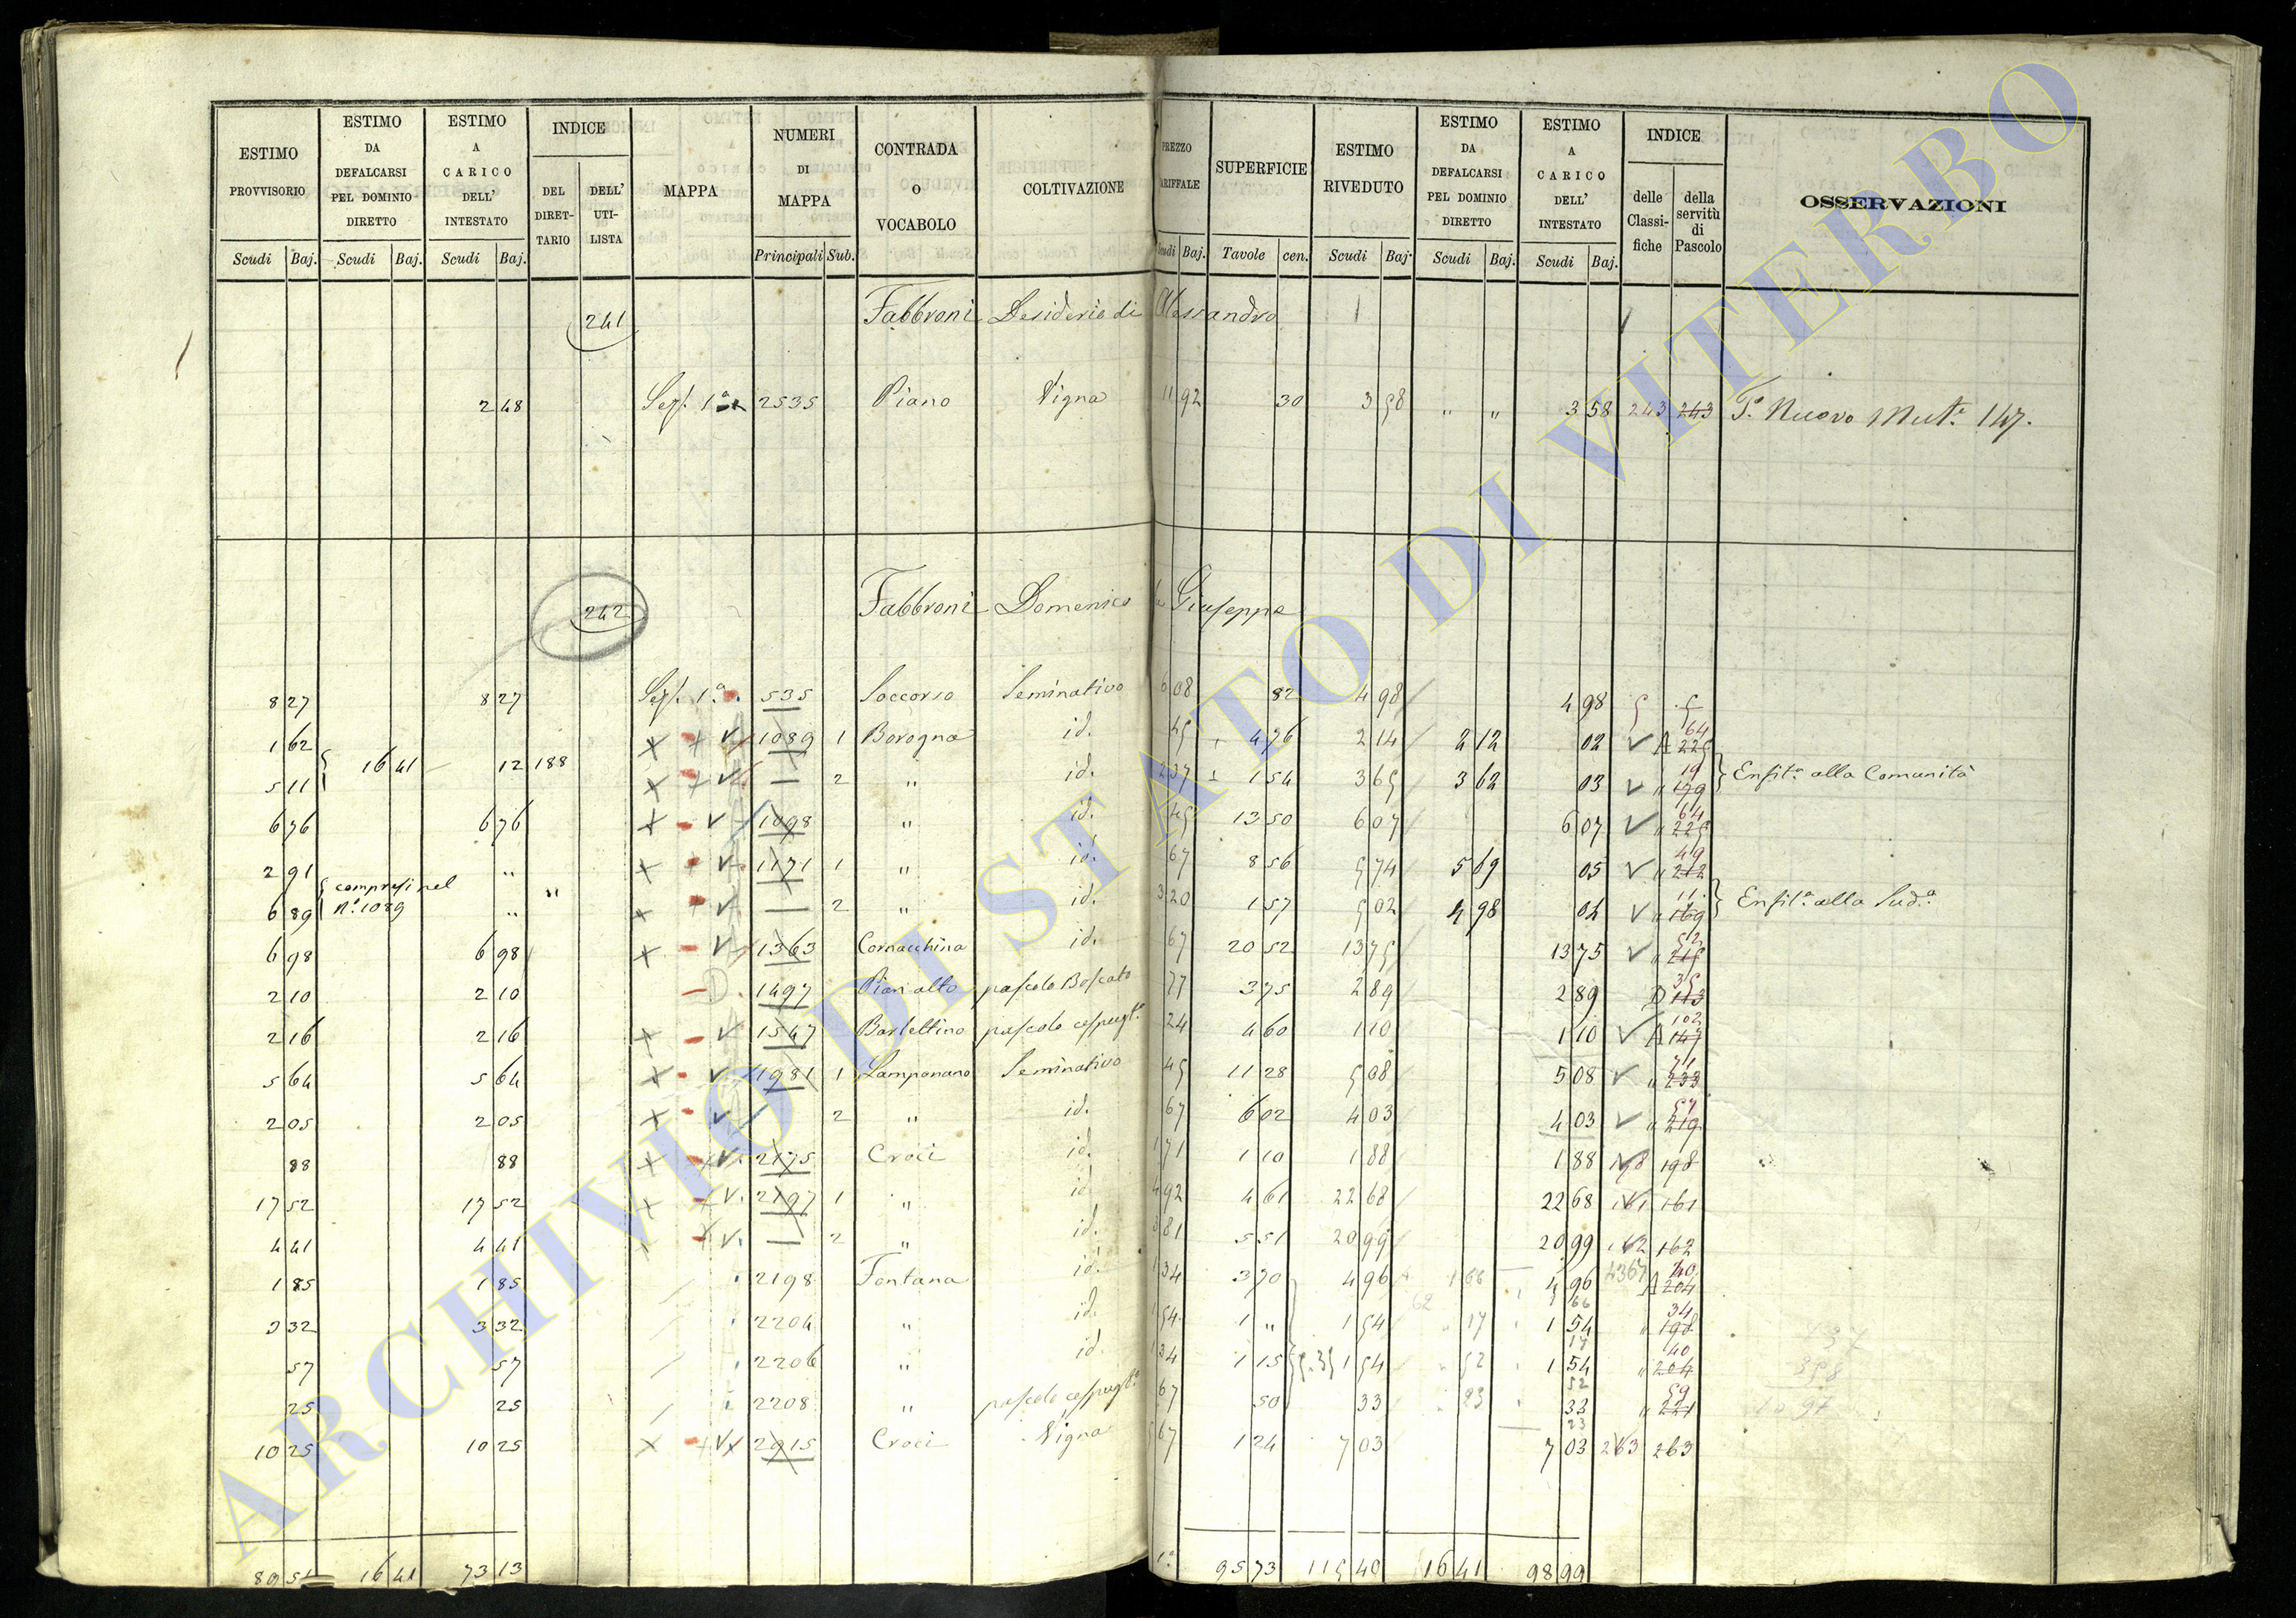 ESTIMO PROVVISORIO | ESTIMO DA DEFALCARSI PEL DOMINIO DIRETTO | ESTIMO A CARICO DELL' INTESTATO | INDICE | MAPPA | NUMERI DI MAPPA | CONTRADA O VOCABOLO | COLTIVAZIONE | PREZZO | SUPERFICIE | ESTIMO RIVEDUTO | ESTIMO DA DEFALCARSI PEL DOMINIO DIRETTO | ESTIMO A CARICO DELL' INTESTATO | INDICE | OSSERVAZIONI
DEL DIRET-TARIO | DELL' UTI-LISTA | ARIFFALE | delle Classi-fiche | della servitù di Pascolo
Scudi | Baj. | Scudi | Baj. | Scudi | Baj. | Principali | Sub. | Scudi | Baj. | Tavole | cen. | Scudi | Baj. | Scudi | Baj. | Scudi | Baj.
241 Fabbroni Desiderio di Alessandro
2 48 Sez. 1a 2535 Piano Vigna 11 92 30 3 58 " " 3 58 243 243 To Nuovo Mut. 147.
242 Fabbroni Domenico Giuseppe
8 27 8 27 Sez. 1a 535 Soccorso Seminativo 6 08 82 4 98 4 98 5 5
1 62 1089 1 Borogna id. 45 4 76 2 14 2 12 02 A 64 225
16 41 12 188
5 11 — 2 " id. 2 37 1 54 3 65 3 62 03 " 19 179 Enfit. alla Comunità
6 76 6 76 1098 " id. 45 13 50 6 07 6 07 " 64 225
2 91 " 1171 1 " id. 67 8 56 5 74 5 69 05 " 49 212
compresi nel No. 1089 "
6 89 " — 2 " id. 3 20 1 57 5 02 4 98 04 " 11 169 Enfit. alla Sud.a
6 98 6 98 1363 Cornacchina id. 67 20 52 13 75 13 75 " 52 215
2 10 2 10 1497 Pian alto pascolo Boscato 77 3 75 2 89 2 89 D 35 113
2 16 2 16 1547 Barlettino pascolo cespugt. 24 4 60 1 10 1 10 A 102 147
5 64 5 64 1981 1 Lamponano Seminativo 45 11 28 5 08 5 08 " 71 233
2 05 2 05 2 " id. 67 6 02 4 03 4 03 " 57 219
88 88 2175 Croci id. 1 71 1 10 1 88 1 88 198 198
17 52 17 52 2197 1 " id. 4 92 4 61 22 68 22 68 161 161
4 41 4 41 — 2 " id. 3 81 5 51 20 99 20 99 162 162
1 85 1 85 2198 Fontana id. 1 34 3 70 4 96 1 66 4 96 4367 A 40 204
3 32 3 32 2204 " id. 1 54 1 " 1 54 17 1 54 " 34 198
57 57 2206 " id. 1 34 1 15 1 54 52 1 54 " 40 204
25 25 2208 " pascolo cespugt. 67 50 33 23 33 " 59 221
10 25 10 25 2915 Croci Vigna 5 67 1 24 7 03 7 03 263 263
89 51 16 41 73 13 95 73 115 40 16 41 98 99
ARCHIVIO DI STATO DI VITERBO